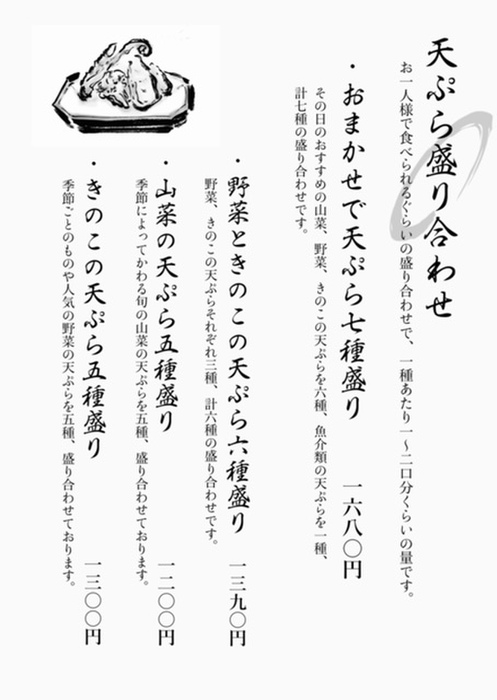 天ぷら盛り合わせ
お一人様で食べられるぐらいの盛り合わせで、一種あたり一～二口分くらいの量です。
・おまかせで天ぷら七種盛り 一六八〇円
その日のおすすめの山菜、野菜、きのこの天ぷらを六種、魚介類の天ぷらを一種、
計七種の盛り合わせです。
・野菜ときのこの天ぷら六種盛り 一三九〇円
野菜、きのこの天ぷらそれぞれ三種、計六種の盛り合わせです。
・山菜の天ぷら五種盛り 一二〇〇円
季節によってかわる旬の山菜の天ぷらを五種、盛り合わせております。
・きのこの天ぷら五種盛り 一三〇〇円
季節ごとのものや人気の野菜の天ぷらを五種、盛り合わせております。